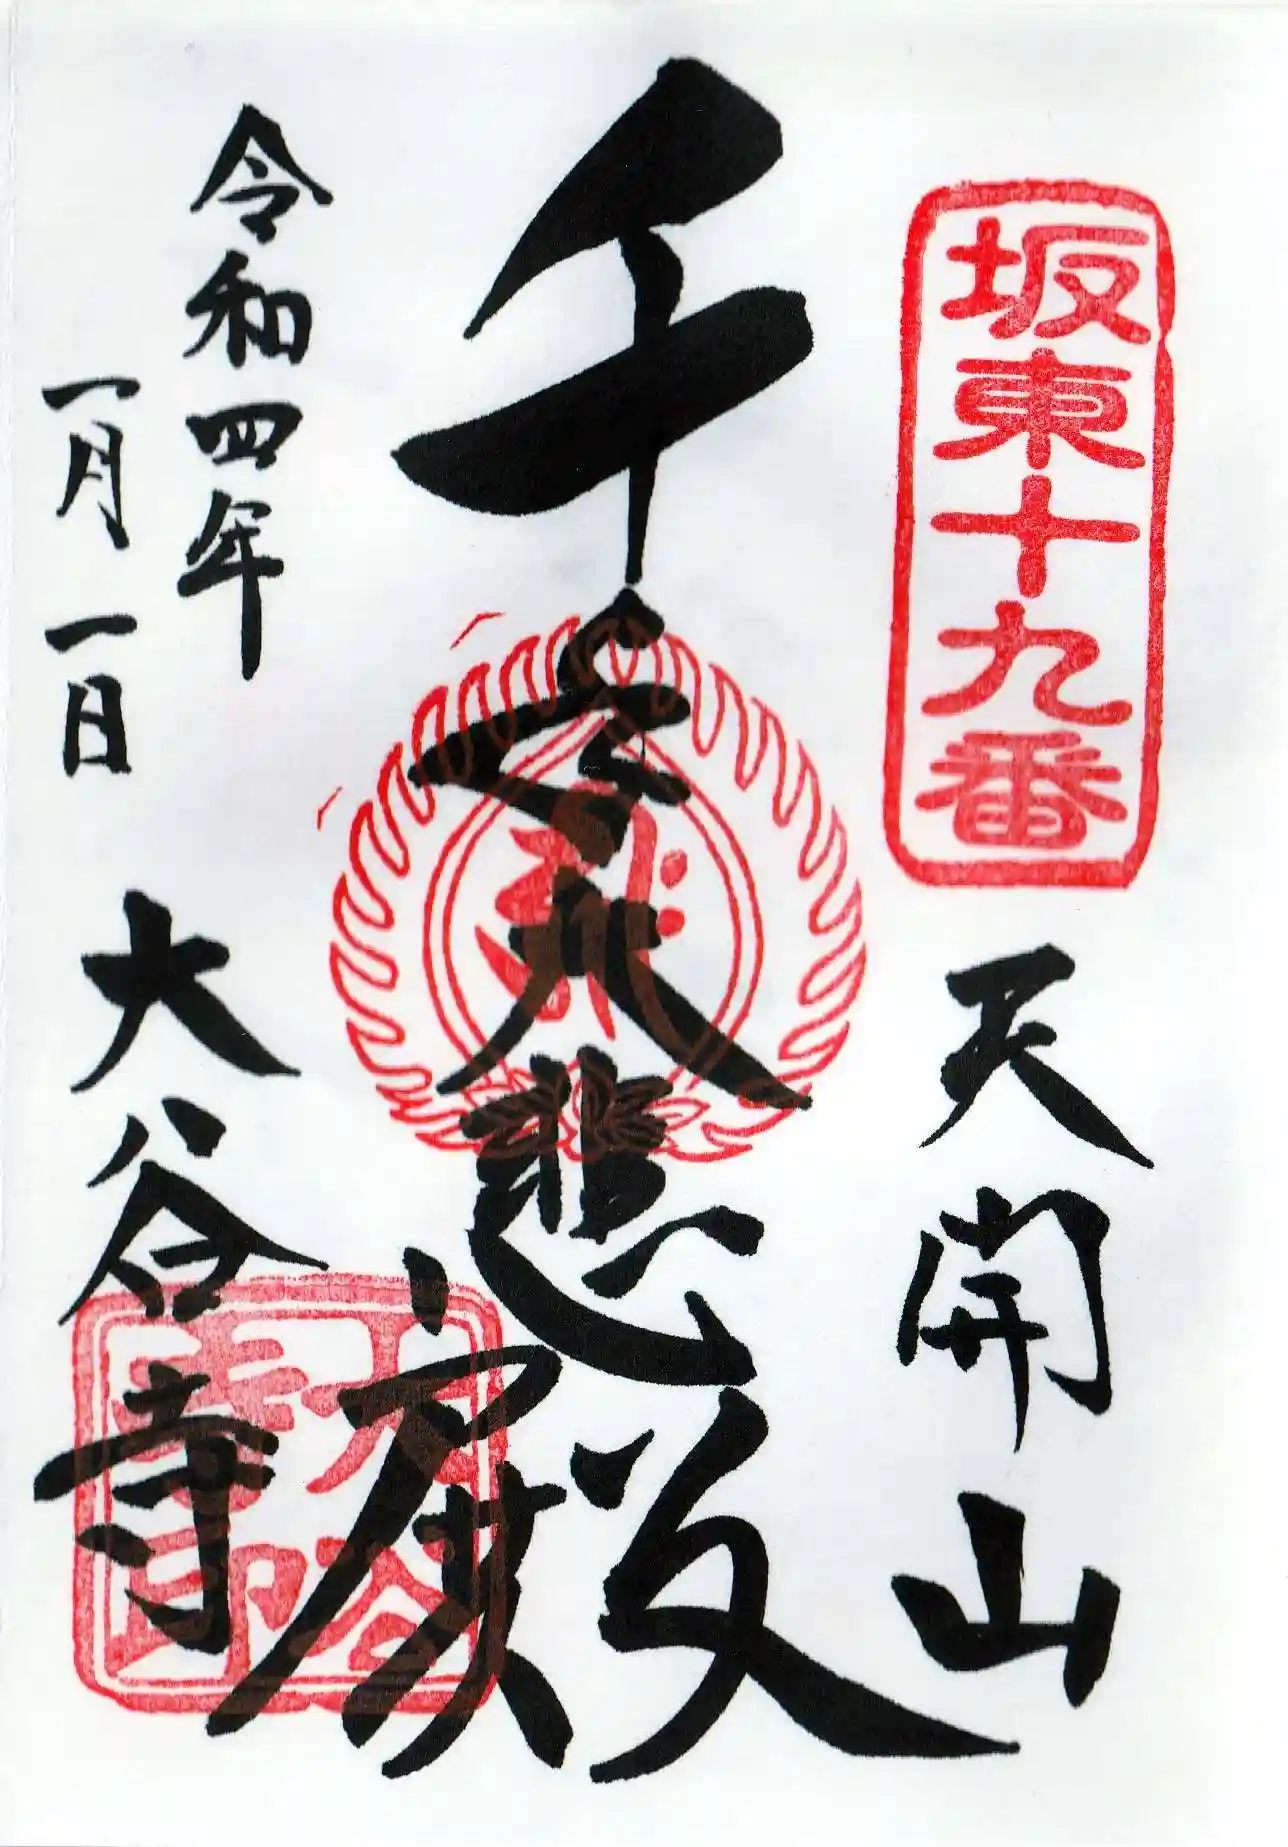 坂東十九番
天開山
千手大悲殿
令和四年
一月一日
大谷寺
大谷
寺印